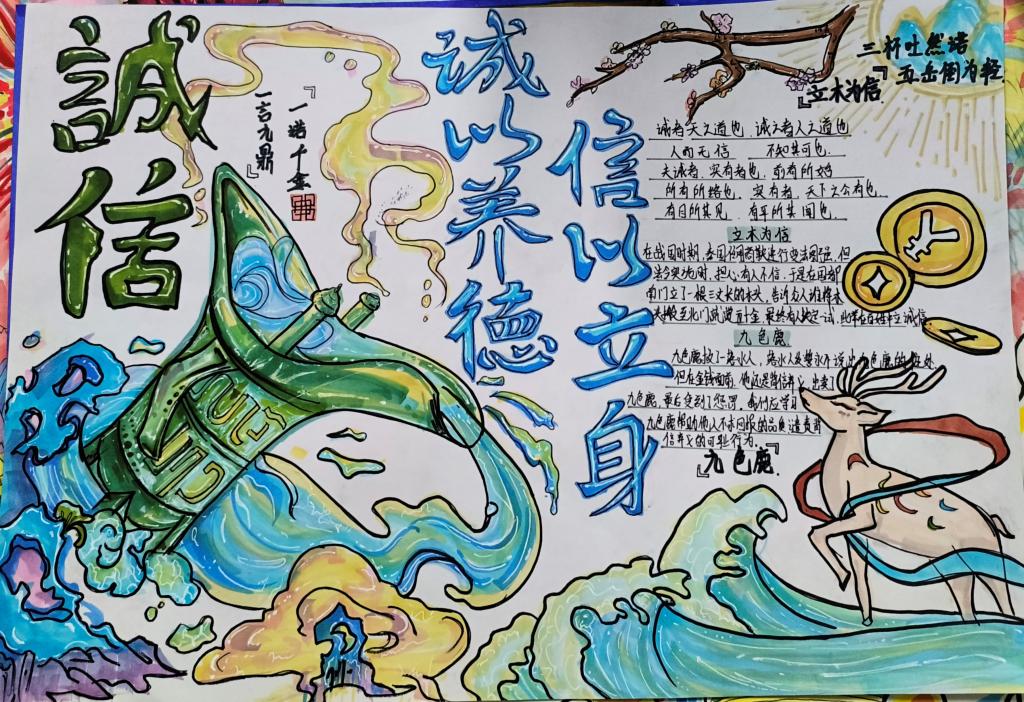 誠信
『一诺千金
一言九鼎』
诚以养德
信以立身
三杯吐然诺
五岳倒为轻
『立木为信
诚者天之道也 诚之者人之道也
人而无信 不知其可也
夫诚者, 实有者也, 前有所始
所有所终也, 实有者, 天下之公有也
有目所共见, 有耳所共闻也
立木为信
在战国时期, 秦国的商鞅进行变法图强, 但
法令实施时, 担心有人不信, 于是在国都
南门立了一根三丈长的木头, 告诉众人谁将木
头搬至北门就赏百金
九色鹿
九色鹿救了一落水人, 落水人发誓永不说出九色鹿的
但在金钱面前, 他还是背信弃义, 出卖了
九色鹿, 最后受到了惩罚, 我们应学习
九色鹿帮助他人不求回报的品质谴责背
信弃义的可耻行为.
『九色鹿』